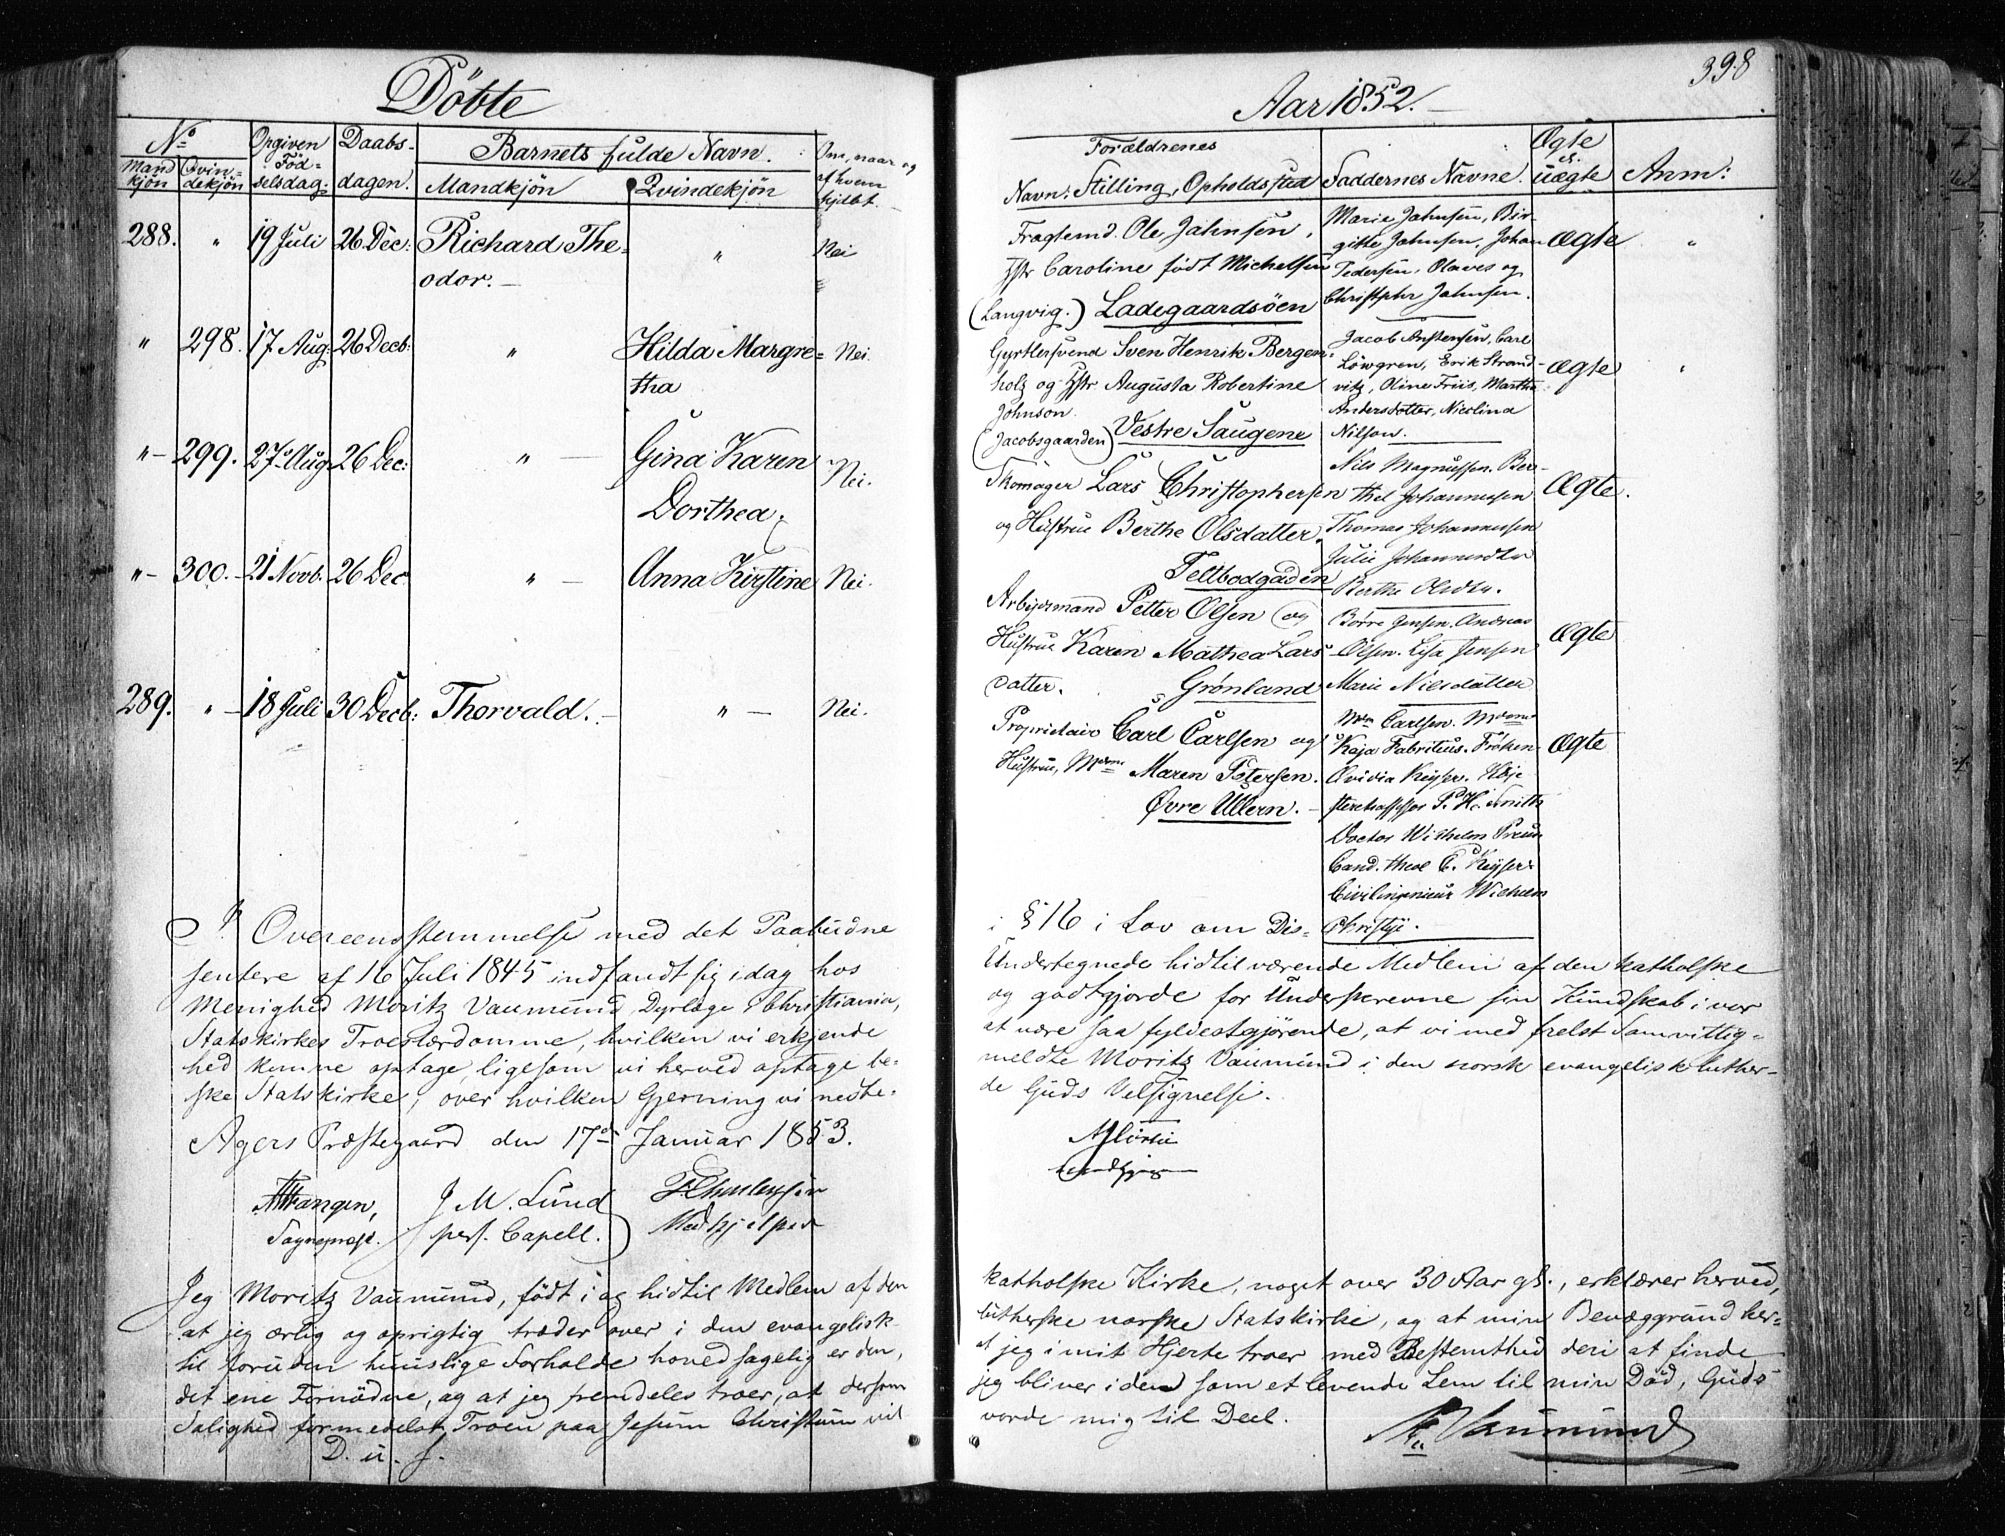 398
Döbte
Aar 1852.
No
Mandkjön
Qvindekjön
Opgiven Fødselsdag.
Daabsdagen.
Barnets fulde Navn.
Mandkjön
Qvindekjön
Om, naar og af hvem hjdbt.
Forældrenes
Navn, Stilling, Opholdssted
Faddernes Navne.
Ægte el. uægte
Anm:
288. " 19 Juli 26 Dec: Richard The- " Nei
odor.
Fragtemd. Ole Jahnsen,
Hstr Caroline født Michelsen
(Langvig.) Ladegaardsöen
Maria Jahnsen, Bir-
gitte Jahnsen, Johan
Pedersen, Olaves og
Christopher Jahnsen.
Ægte "
" 298. 17 Aug: 26 Decb: " Hilda Margre- Nei.
tha
Gjørtlersvend Sven Henrik Bergen-
holz og Hstr Augusta Robertine
Johnson.
(Jacobsgaarden) Vestre Saugene
Jacob Anstensen, Carl
Löwgren, Erik Strand-
vitz, Oline Friis, Martha
Andersdotter, Nicolina
Nilson.
Ægte "
" 299. 27 Aug 26 Dec: " Gina Karen Nei.
Dorthea.
Skomager Lars Christophersen
og Hustrue Berthe Olsdatter.
Teltbodgaden
Nils Magnussen. Ber-
thel Johannesen
Thomas Johannesen
Julie Johannesdtr
Berthe Olsdtr.
Ægte.
" 300. 21 Novb. 26 Dec " Anna Kirstine Nei.
Arbejdsmand Petter Olsen og
Hustrue Karen Mathea Lars
datter. Grönland
Börre Jensen. Andreas
Olsen. Lisa Jensen
Marie Nilsdatter
Ægte
289. " 18 Juli 30 Decb: Thorvald. " Nei.
Proprietair Carl Carlsen og
Hustrue, Mdme Maren Petersen.
Øvre Ullern.
Mdm Carlsen. Mdme
Kaja Fabritius. Fröken
Ovidia Keyser. Höje
steretsassessor P. H. Smith
Doctor Wilhelm
Cand. theol C. Keyser
Civilingenieur Wilhelm
Christje.
Ægte
I Overeensstemmelse med det Paabudne i § 16 i Lov om Dis-
sentere af 16 Juli 1845 indfandt sig idag hos Undertegnede hidtil værende Medlem af den katholske
Menighed Moritz Vaumund, Dyrlæge i Christiania, og godtgjorde for Underskrevne sin Kundskab i vor
Statskirkes Troeslærdomme, hvilken vi erkjende at være saa fyldestgjørende, at vi med frelst Samvittig-
hed kunne optage, ligesom vi herved optage be- meldte Moritz Vaumund i den norsk evangelisk luther-
ske Statskirke, over hvilken Gjerning vi nedbe- de Guds Velsignelse.
Agers Præstegaard den 17de Januar 1853.
Wangen, Sogneprest.
J. M. Lund pers. Capell.
Medhjelper
Jeg Moritz Vaumund, født i og hidtil Medlem af den katholske Kirke, noget over 30 Aar gl., erklærer herved,
at jeg ærlig og oprigtig træder over i den evangelisk- lutherske norske Statskirke, og at min Bevæggrund her-
til foruden huuslige Forholde hovedsagelig er den, at jeg i mit Hjerte troer med Bestemthed deri at finde
det ene Fornödne, og at jeg fremdeles troer, at dersom jeg bliver i den som et levende Lem til min Död, Guds
Salighed formedelst Troen paa Jesum Christum vil vorde mig til Deel.
D. u. s.
M. Vaumund